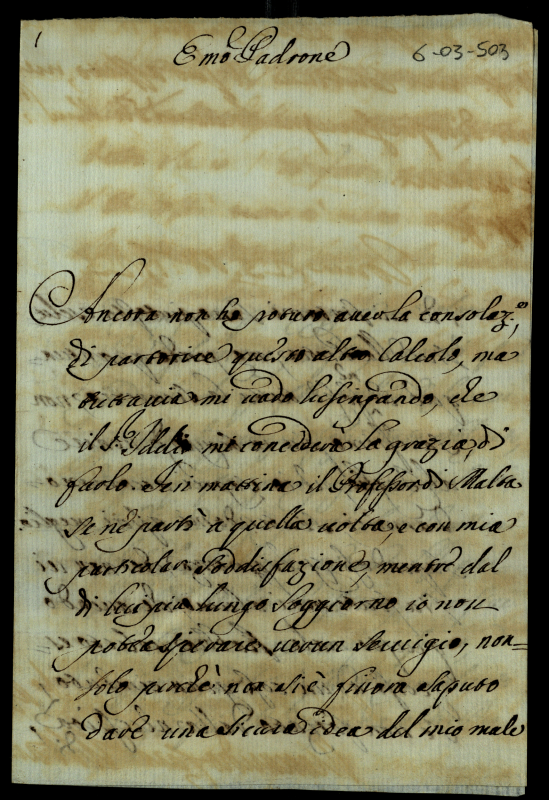 1
Emõ Padrone
6-03-503
Ancora non ho potuto aver la consolaz.e,
di partorire questo altro Calcolo, ma
tuttavia mi vado lusingando, che
il S. Iddio mi concederà la grazia, di
farlo. Ieri mattina il Professor di Malta
se ne partì à quella volta, e con mia
particolar soddisfazione, mentre dal
di lui più lungo soggiorno io non
potea sperare verun servigio, non=
solo perchè non si è finora saputo
dare una sicura idea del mio male